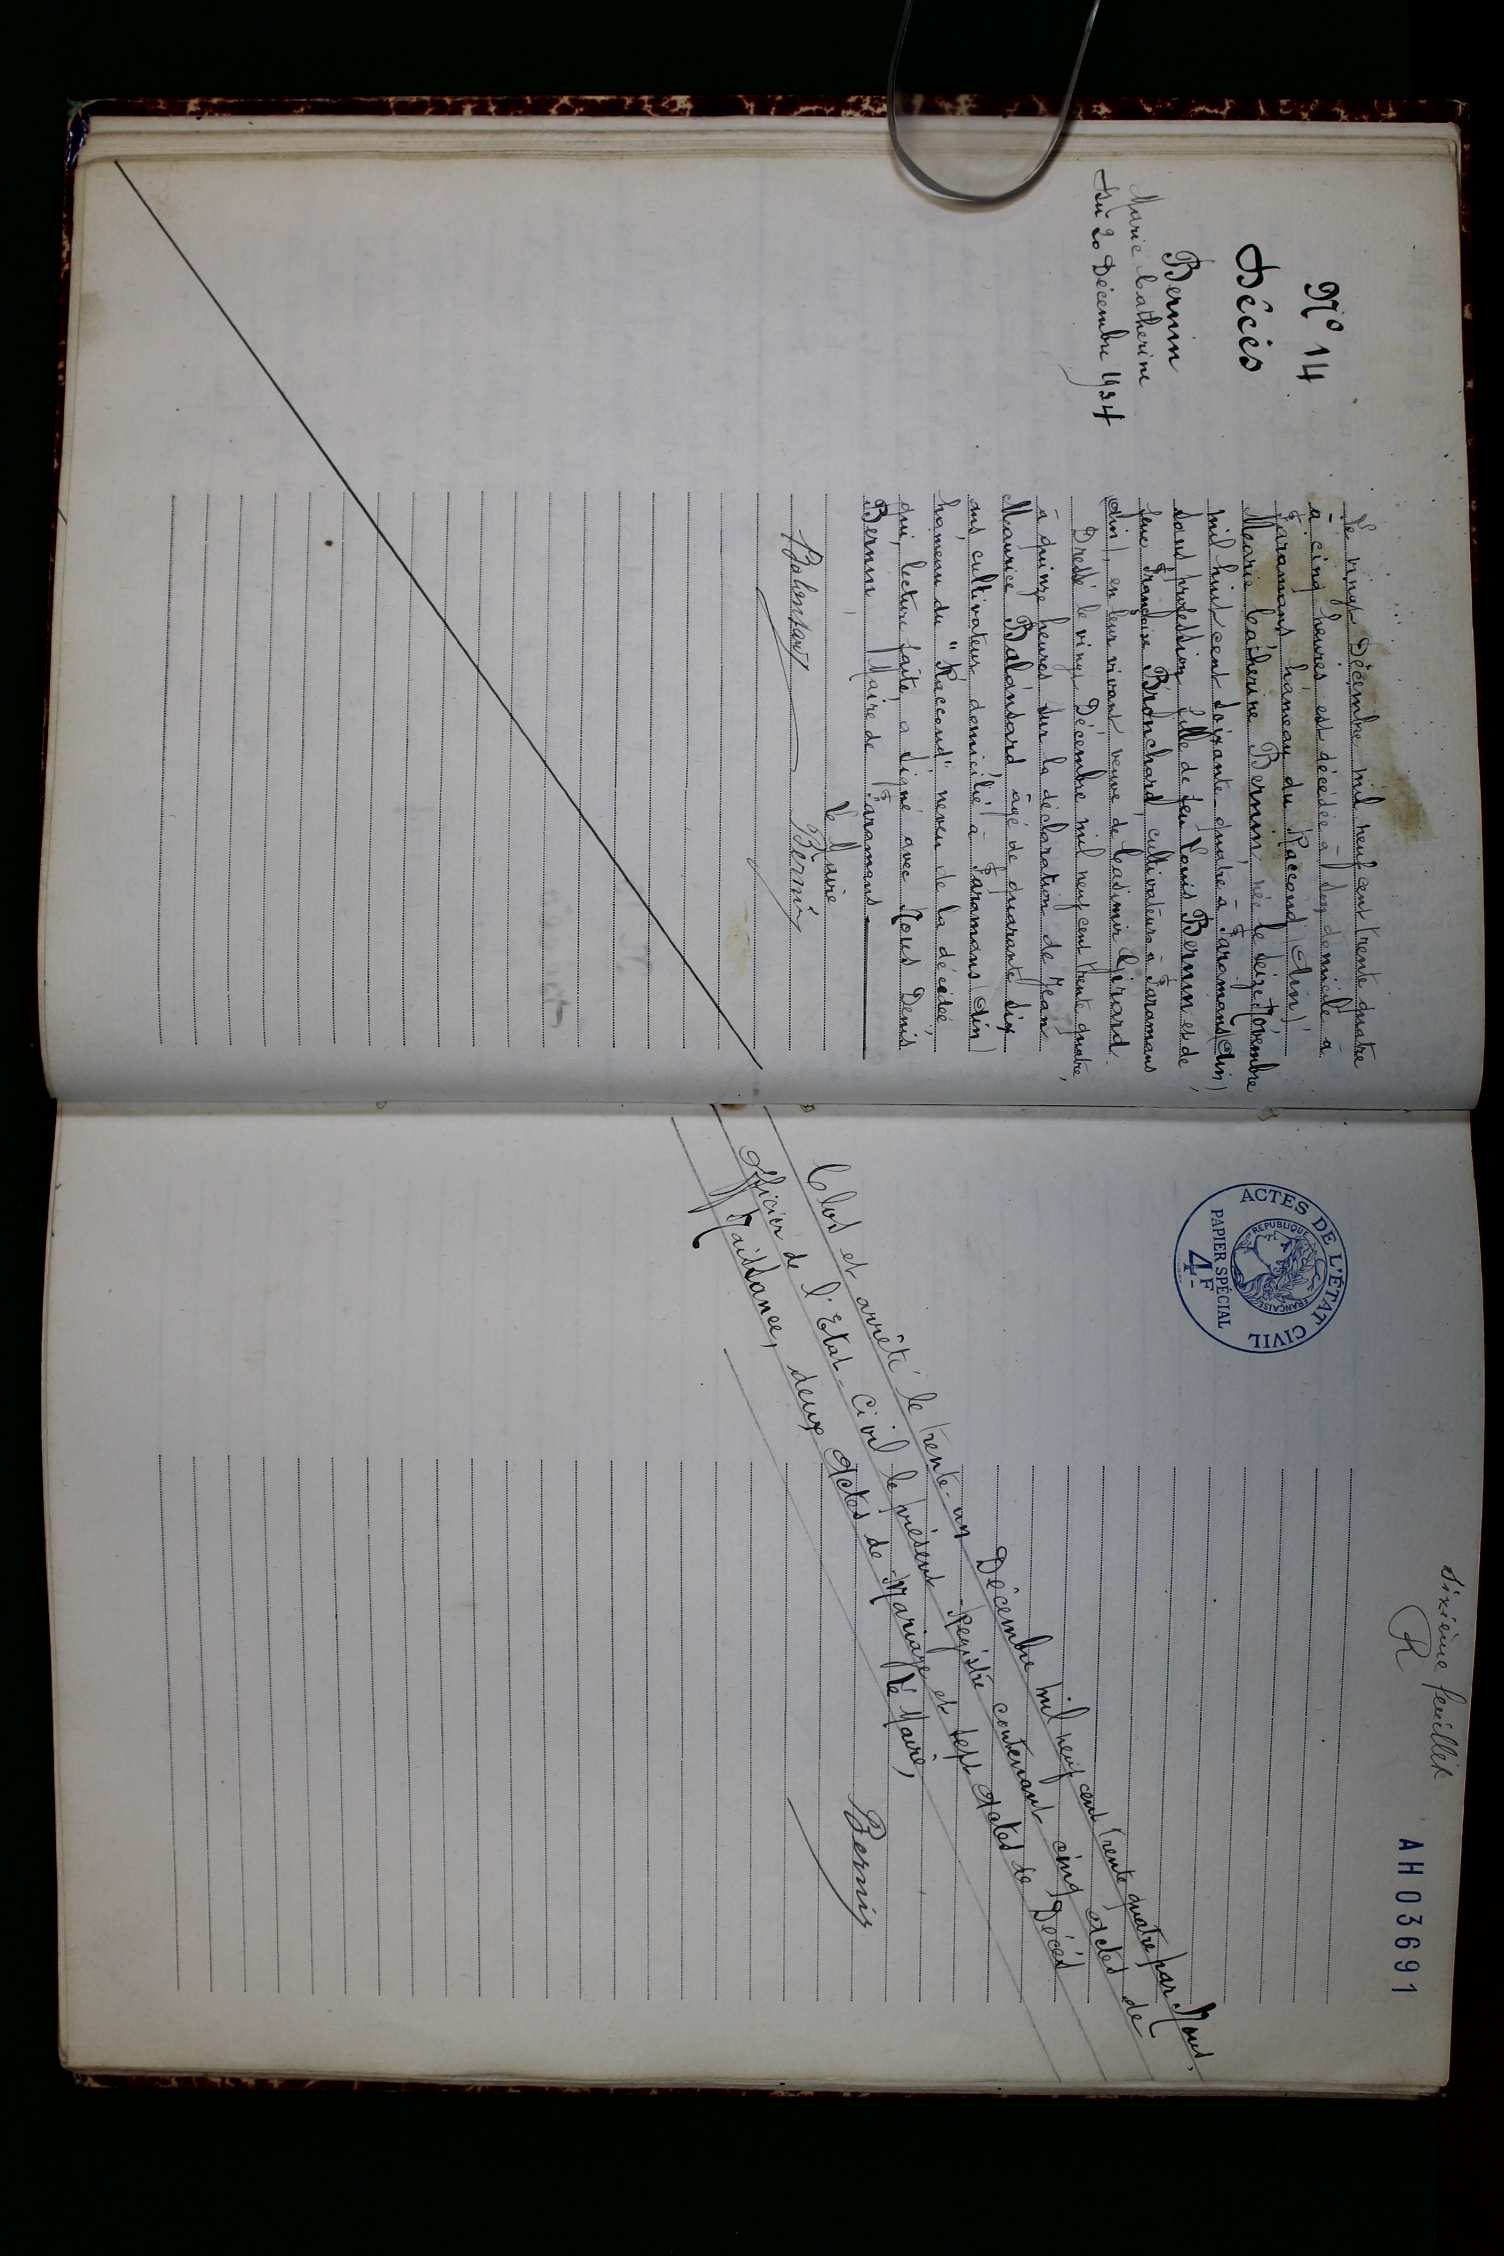 N° 14
Décès
Bernin
Marie Catherine
Du 20 Décembre 1934
Le vingt Décembre mil neuf cent trente quatre
à cinq heures est décédée à son domicile à
Faramans hameau du Raccond (Ain)
Marie Catherine Bernin, née le seize Novembre
mil huit cent soixante-quatre à Faramans (Ain)
sans profession fille de feu Louis Bernin et de
feue Françoise Bronchard, cultivateurs à Faramans
(Ain), en leur vivant veuve de Casimir Girard.
Dressé le vingt Décembre mil neuf cent trente quatre,
à quinze heures sur la déclaration de Jean
Maurice Balansard âgé de quarante six
ans, cultivateur domicilié à Faramans (Ain)
hameau du "Raccond", neveu de la décédée,
qui, lecture faite, a signé avec Nous Denis
Bernin Maire de Faramans
Le Maire
Balansard Bernin
sixième feuillet
R
AH03691
ACTES DE L'ÉTAT CIVIL
REPUBLIQUE FRANÇAISE
PAPIER SPÉCIAL
4F
Clos et arrêté le trente-un Décembre mil neuf cent trente quatre par Nous,
Officier de l'Etat-Civil le présent Registre contenant cinq Actes de
Naissance, deux Actes de Mariage et sept Actes de Décès
Le Maire,
Bernin